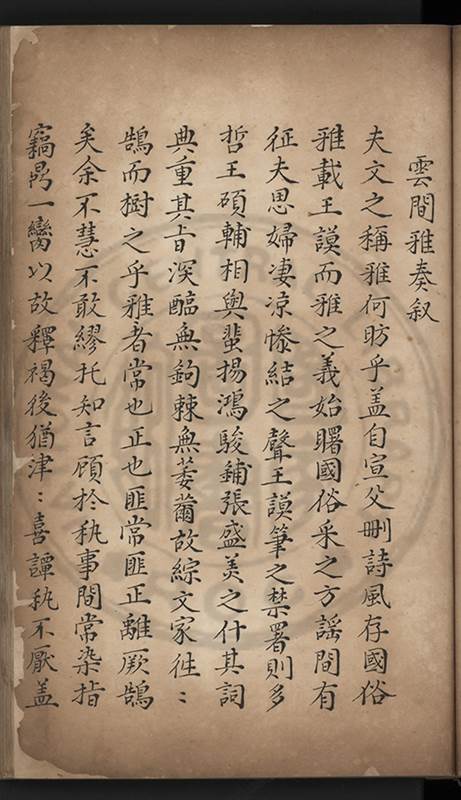 雲間雅奏叙
夫文之稱雅何昉乎盖自宣父刪詩風存國俗
雅載王謨而雅之義始曙國俗采之方謡間有
征夫思婦凄凉惨結之聲王謨筆之禁署則多
哲王碩輔相與蜚揚鴻駿鋪張盛美之什其詞
典重其旨深醞無鉤棘無萎薾故綜文家徃〻
鵠而樹之乎雅者常也正也匪常匪正離厥鵠
矣余不慧不敢繆托知言顧於執事間常染指
竊鼎一臠以故釋褐後猶津〻喜譚執不厭盖